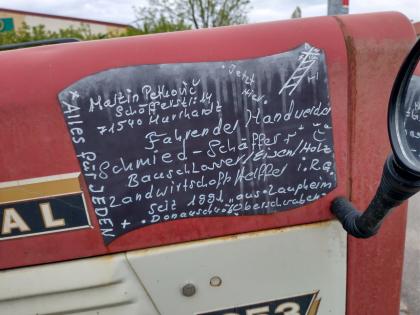 Martin Petkovič
Schöfferstr. 14
71540 Murrhardt
Jetzt
Hier
Fahrender Handwerker
Schmied-Schäffer
Bauschlosser/Eisen/Holz
Landwirtschafts Helffer i.R.
seit 1991 aus Laupheim
Donauschwäb
*Alles Für JEDEN*
AL
353